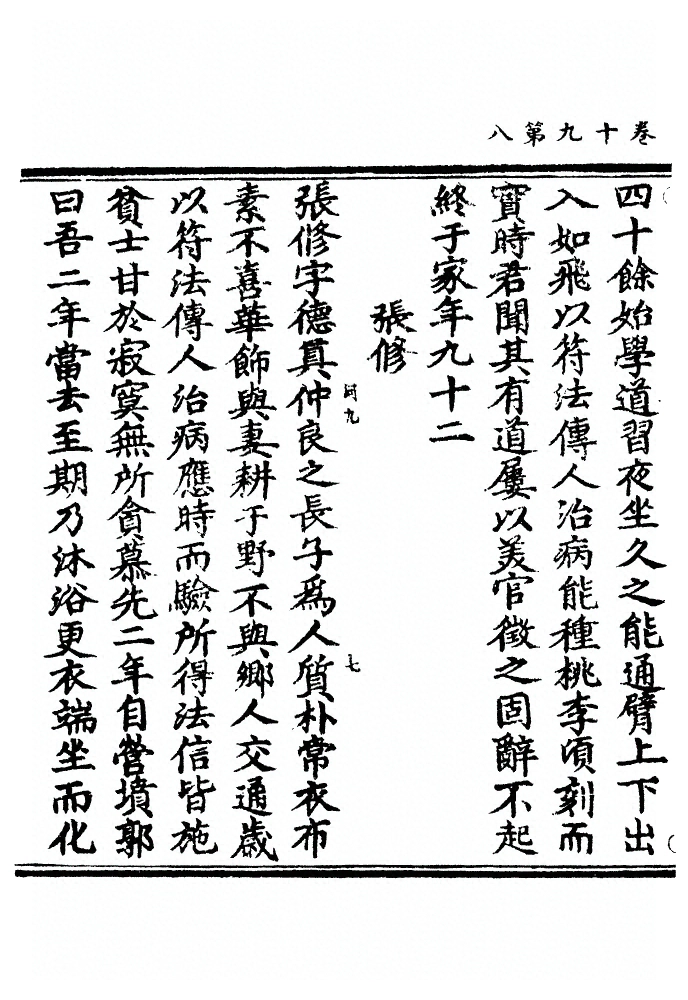 卷十九第八
四十餘始學道習夜坐久之能通臂上下出
入如飛以符法傳人治病能種桃李頃刻而
寶時君聞其有道屢以美官徵之固辭不起
終于家年九十二
張修
張修字德真仲良之長子為人質朴常衣布
河九
七
素不喜華飾與妻耕于野不與鄉人交通歲
以符法傳人治病應時而驗所得法信皆施
貧士甘於寂寞無所貪慕先二年自營墳郭
曰吾二年當去至期乃沐浴更衣端坐而化